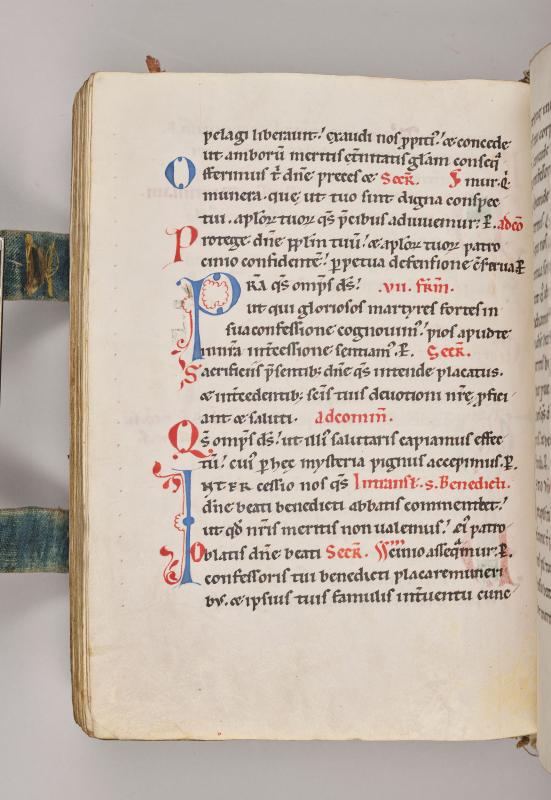 pelagi liberauit! exaudi nos ꝓpiti᷒! ⁊ concede
ut amborū meritis et̄nitatis glam̄ conseq̄
Offerimus t̄ dn̄e preces ⁊ Secr̄. mur. q̄
munera. que ut tuo sint digna conspec
tui. aplōꝝ tuoꝝ q̄s p̄cibus adiuuemur. P̄. adcō
Protege dn̄e pplm̄ tuū! ⁊ aplōꝝ tuoꝝ patro
cinio confidentē! ꝑpetua defensione cōserua. P̄
PRA q̄s omp̄s ds̄! .vii. fr̄m̄.
ut qui gloriosos martyres fortes in
sua confessione cognouim᷒! pios apud te
in nr̄a int̄cessione sentiam᷒. P̄. Secr̄.
Sacrificiis p̄sentib; dn̄e q̄s intende placatus.
⁊ int̄cedentib; sc̄is tuis deuotioni nr̄e ꝓfici
ant ⁊ saluti. adcom̄m̄.
Q̄s omp̄s ds̄! ut illi᷒ salutaris capiamus effec
tū! cui᷒ ꝑ hec mysteria pignus accepimus. P̄.
INTER cessio nos q̄s In transl. s. Benedicti.
dn̄e beati benedicti abbatis commendet!
ut qd̄ nr̄is meritis non ualemus! ei᷒ patro
Oblatis dn̄e beati Secr̄. cinio asseq̄mur: P̄.
confessoris tui benedicti placare muneri
bus. ⁊ ipsius tuis famulis int̄uentu cunc